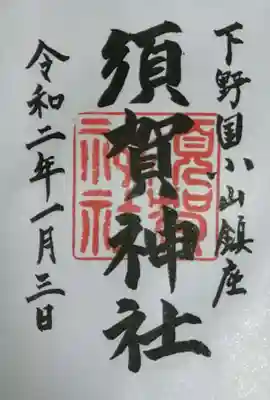 下野国小山鎮座
須賀神社
令和二年一月三日
須賀
神社